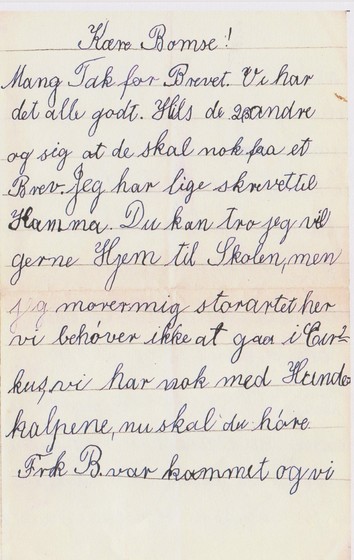 Kære Bomse!
Mang Tak for Brevet. Vi har
det alle godt. Hils de 2 andre
og sig at de skal nok faa et
Brev. Jeg har lige skrevet til
Mamma. Du kan tro jeg vil
gerne Hjem til Skolen, men
jeg morer mig storartet her
vi behöver ikke at gaa i Cir-
kus, vi har nok med Hunde-
halpene, nu skal du höre
Frk B. var kommet og vi